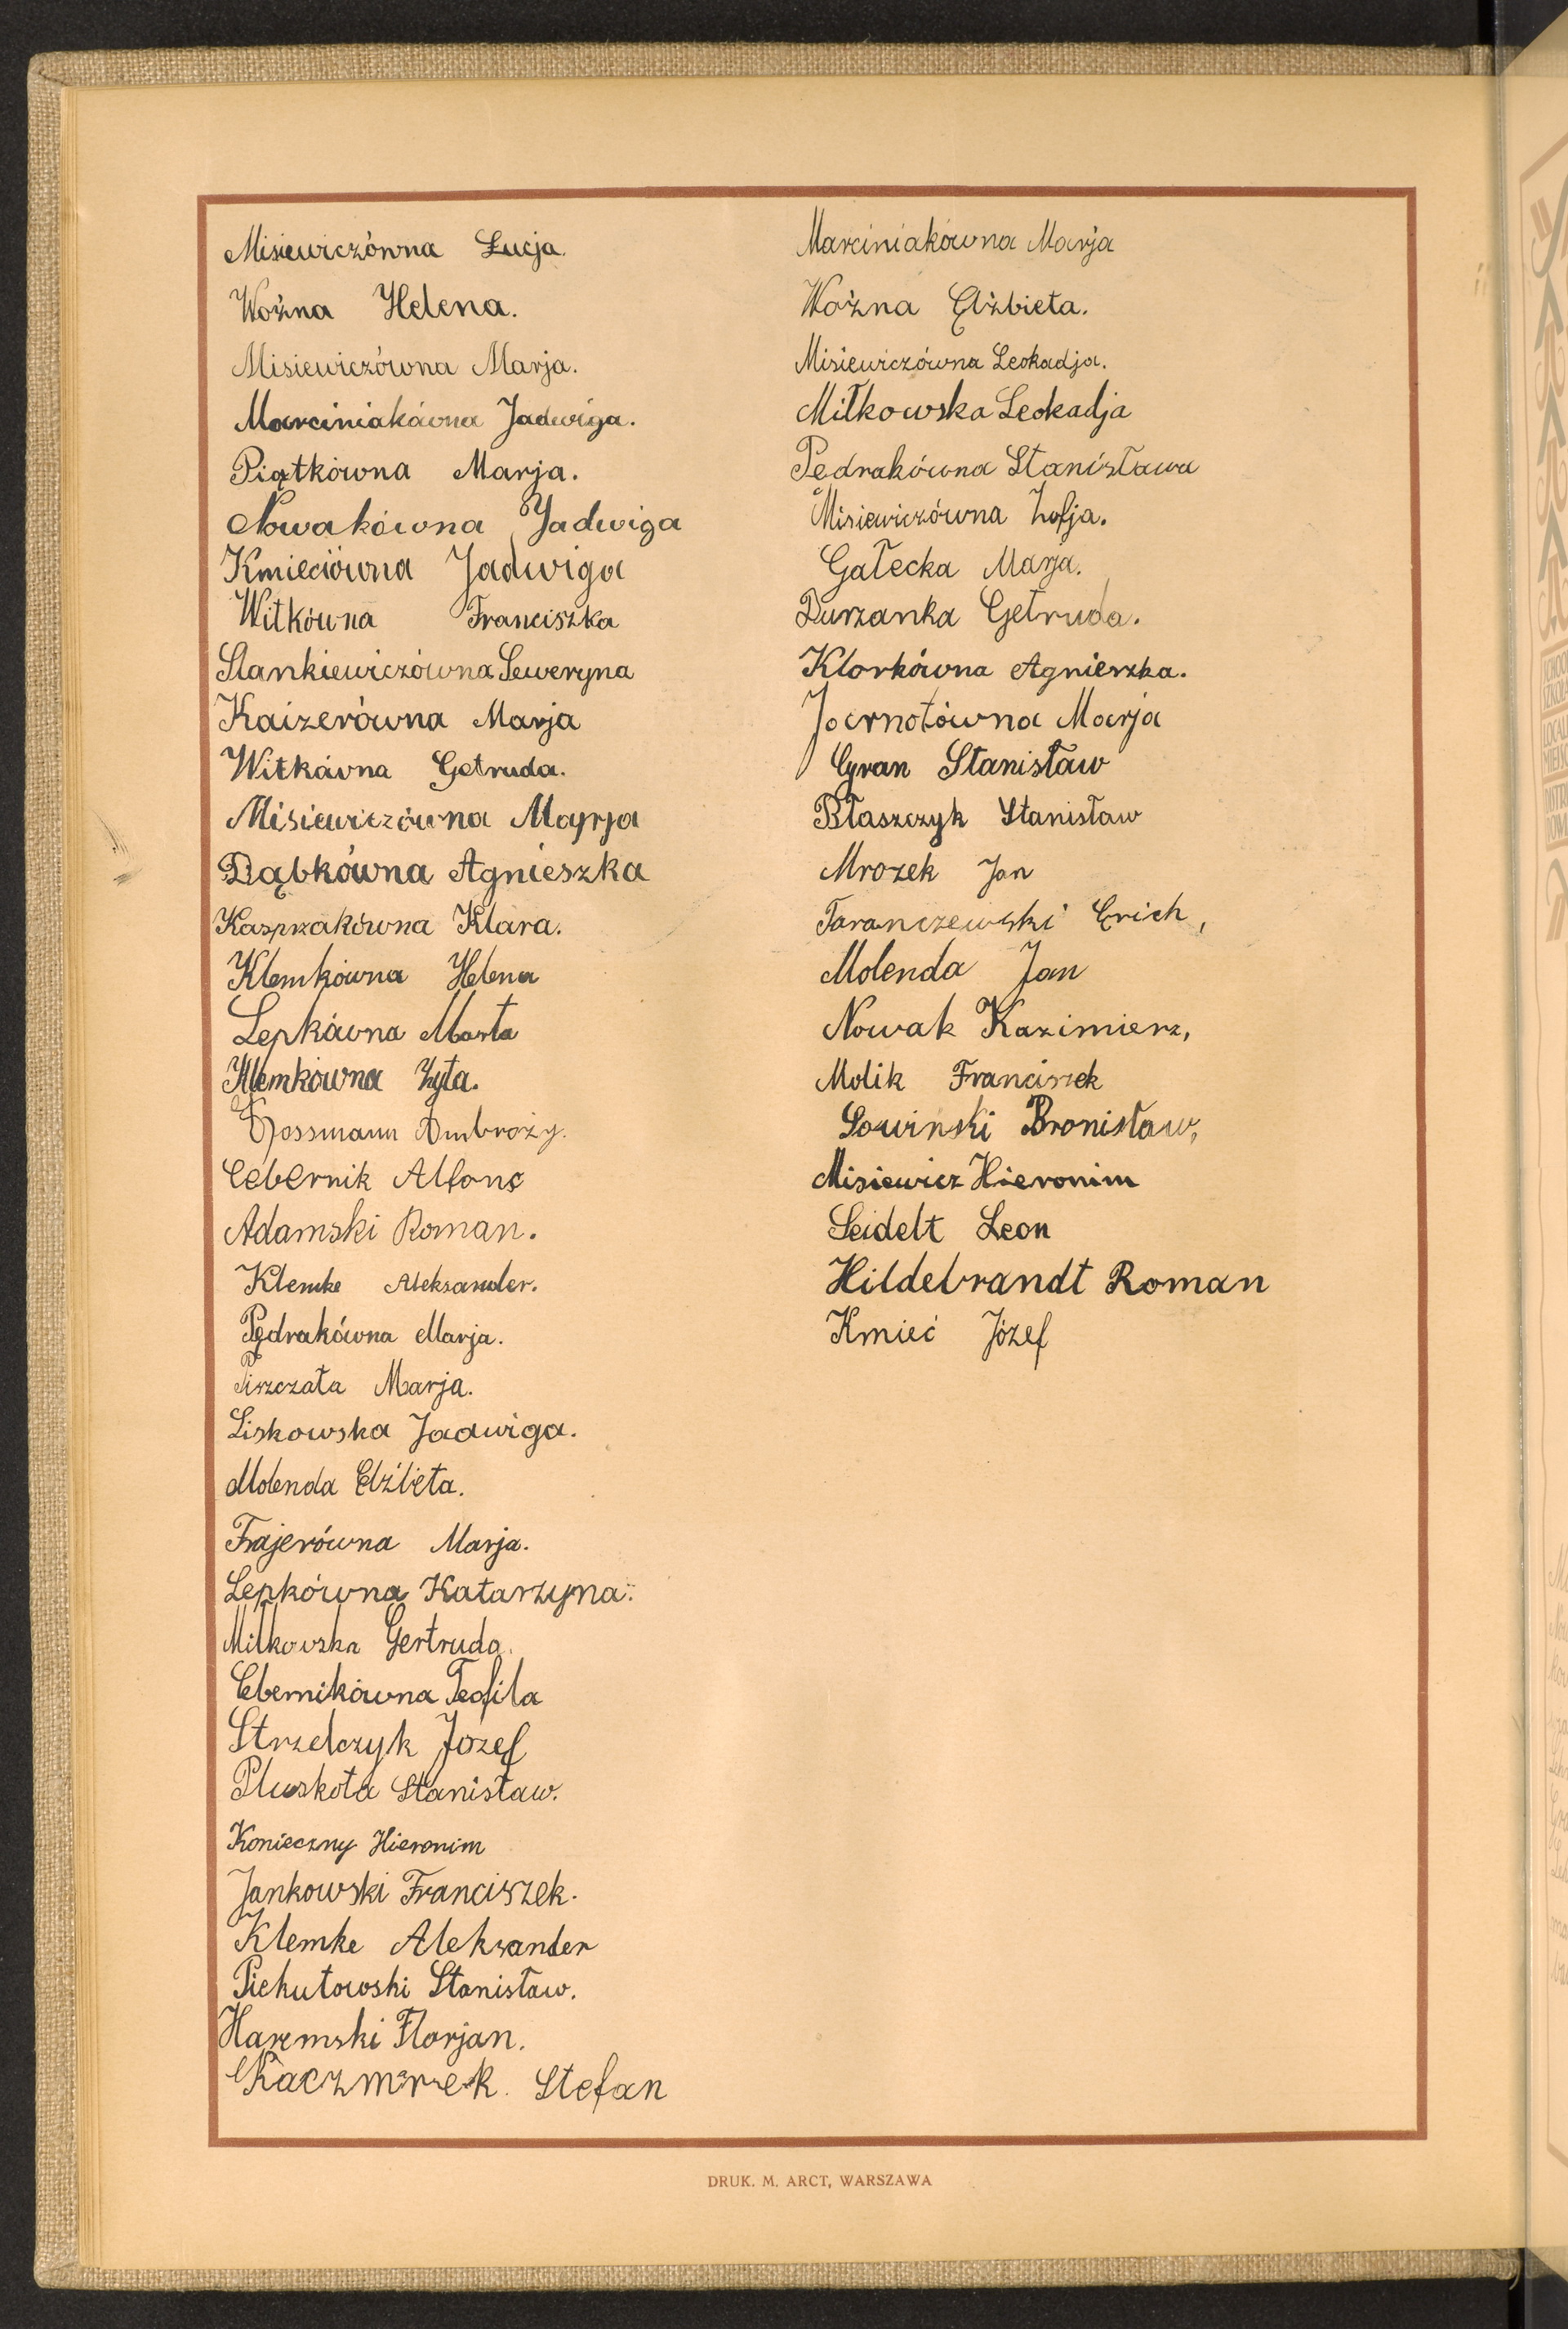 Misiewiczówna Łucja.
Woźna Helena.
Misiewiczówna Marja.
Marciniakówna Jadwiga.
Piątkówna Marja.
Nowakówna Jadwiga
Kmieciówna Jadwiga
Witkówna Franciszka
Stankiewiczówna Seweryna
Kaizerówna Marja
Witkówna Getruda.
Misiewiczówna Maryja
Dąbkówna Agnieszka
Kasprzakówna Klara.
Klemkówna Helena
Lepkówna Marta
Klemkówna Zyta.
Grossmann Ambroży.
Cebernik Alfons
Adamski Roman.
Klemke Aleksander.
Pędrakówna Marja.
Piszczała Marja.
Liskowska Jadwiga.
Molenda Elżbieta.
Frajerówna Marja.
Lepkówna Katarzyna.
Miłkowska Gertruda.
Cebernikówna Teofila
Strzelczyk Józef
Pluskota Stanisław.
Konieczny Hieronim
Jankowski Franciszek.
Klemke Aleksander
Piekutowski Stanisław.
Haremski Florjan.
Kaczmarek. Stefan
Marciniakówna Marja
Woźna Elżbieta.
Misiewiczówna Leokadja.
Miłkowska Leokadja
Pędrakówna Stanisława
Misiewiczówna Zofja.
Gałecka Marja.
Durzanka Getruda.
Klorkówna Agnieszka.
Jarnotówna Marja
Cyran Stanisław
Błaszczyk Stanisław
Mrozek Jan
Taranczewski Erich,
Molenda Jan
Nowak Kazimierz,
Molik Franciszek
Sowiński Bronisław,
Misiewicz Hieronim
Seidelt Leon
Hildebrandt Roman
Kmieć Józef
DRUK. M. ARCT, WARSZAWA